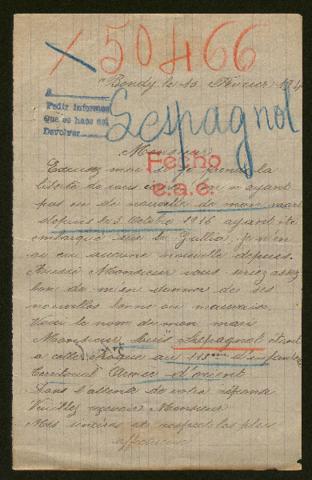 X 50466
Bondy le 10 Février
A
Pedir informes
que es hace así
Devolver
Lespagnol
Monsieur
Fecho
e.a.e.
Excusez moi si je prends la
liberté de vous n'ayant
pas eu de nouvelle de mon mari
depuis le 5 Octobre 1916 ayant été
embarqué sur le Gallia, je n'en
ai eu aucune nouvelle depuis.
Aussi Monsieur vous serez assez
bon de m'en donner de ses
nouvelles bonne ou mauvaise.
Voici le nom de mon mari
Monsieur Lespagnol étant
à cette époque au 113eme d'infanterie
Territorial Armée d'orient
Dans l'attente de votre réponse
Veuillez recevoir Monsieur
Mes sincères et respects les plus